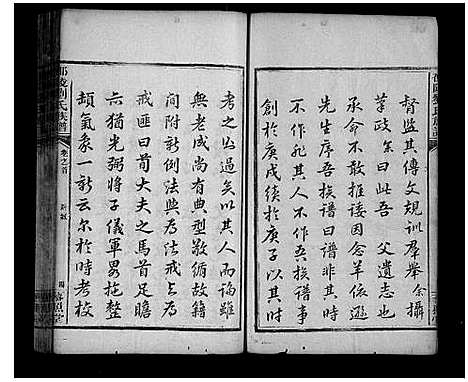 督監其傳文規訓羣舉余攝
筆政矣曰此吾父遺志也
余不敢推諉因念羊依遜
先生序吾族譜曰譜非其時
不作非其人不作吾族譜事
創於庚戌續於庚子以其時
考之凶過矣以其人而論雖
無老成尚有典型敬循故籍
間附新例法與為法戒與為
戒匪曰荀大夫之馬首反
六猶光弼將子儀軍畧搭整
頓氣象一新云爾於時考校
邵陵劉氏族譜
卷之首
新敘